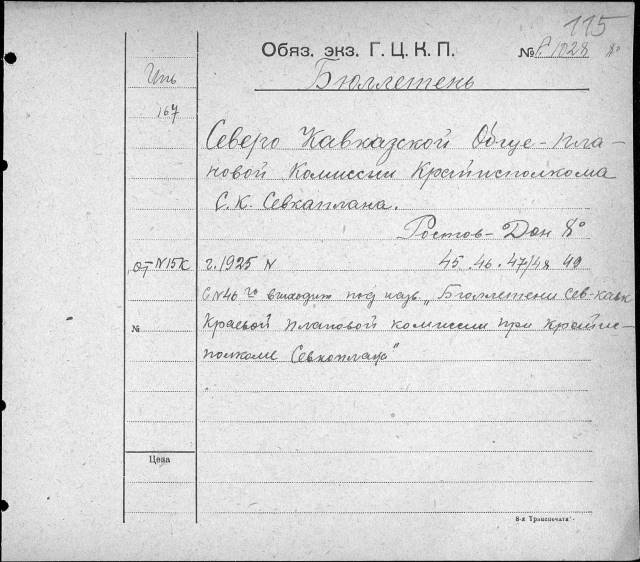 115
Обяз. экз. Г. Ц. К. П.
№ P.1028 8°
Бюллетень
167
Северо Кавказской Обще-пла-
новой Комиссии Крайисполкома
С.К. Севкаплана.
Ростов-Дон 8°
от N15К г. 1925 N 45. 46. 47/48 49
С N46го выходит под назв. „Бюллетени Сев-кавк
№ Краевой плановой комиссии при крайис-
полкоме Севкоплана"
Цена
8-я Транспечати